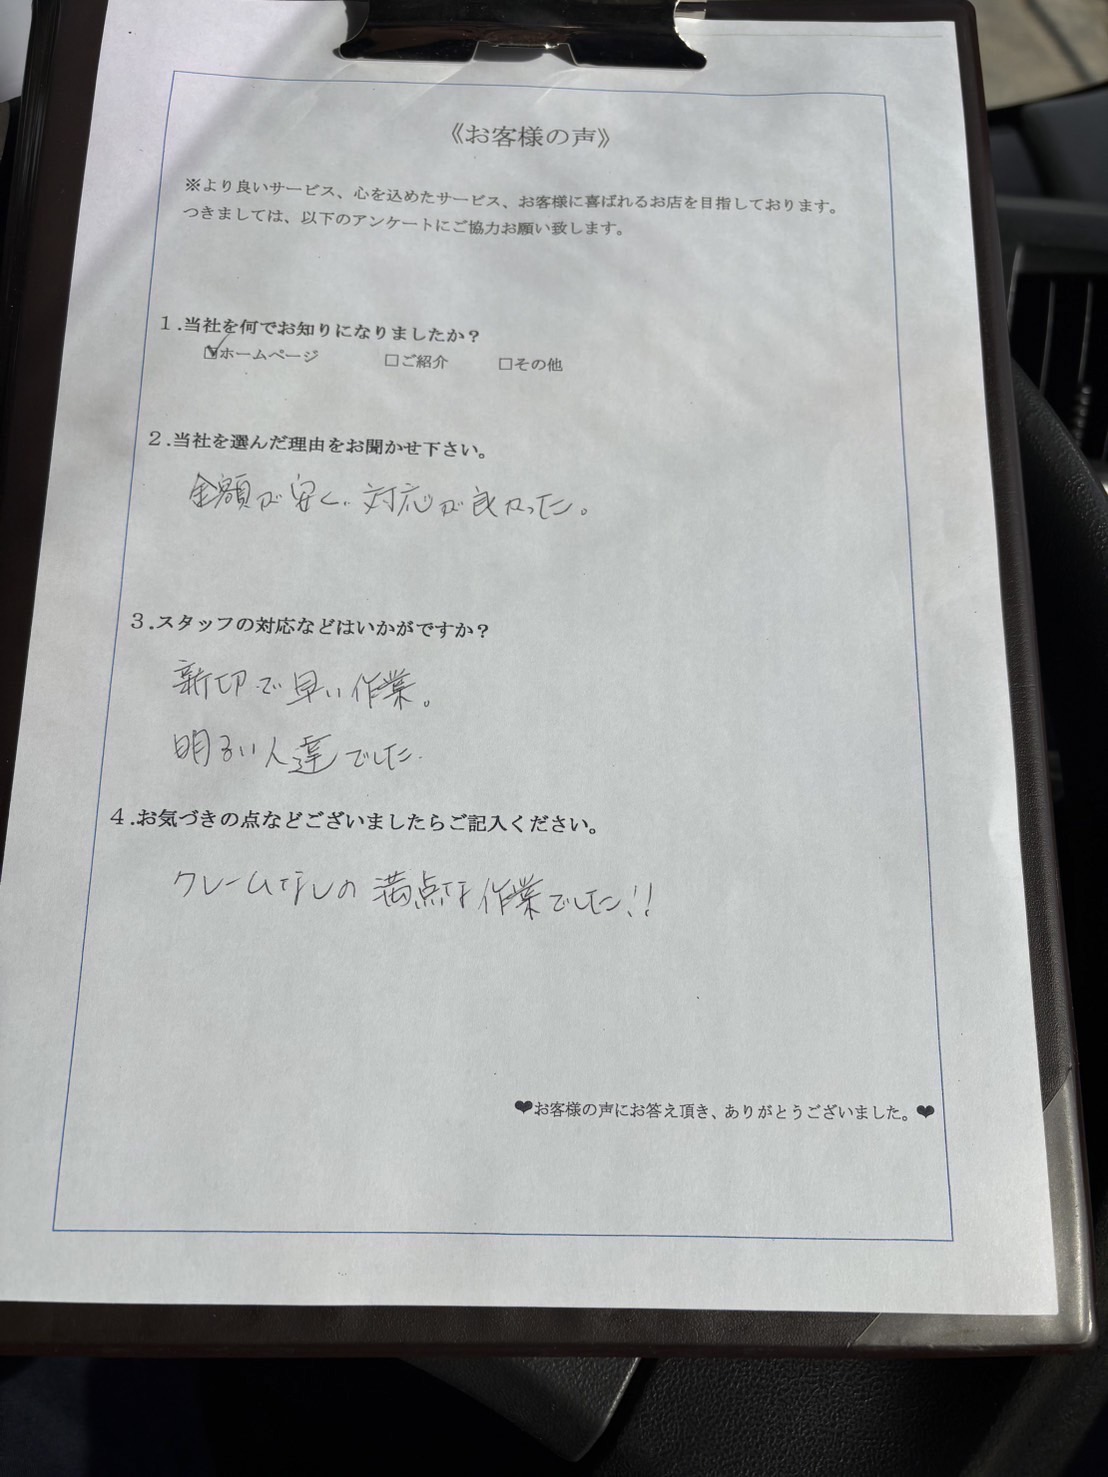 《お客様の声》
※より良いサービス、心を込めたサービス、お客様に喜ばれるお店を目指しております。
つきましては、以下のアンケートにご協力お願い致します。
1.当社を何でお知りになりましたか？
☑ホームページ □ご紹介 □その他
2.当社を選んだ理由をお聞かせ下さい。
金額が安く、対応が良かった。
3.スタッフの対応などはいかがですか？
新切で早い作業。
明るい人達でした.
4.お気づきの点などございましたらご記入ください。
クレームなしの満点な作業でした!!
❤お客様の声にお答え頂き、ありがとうございました。❤